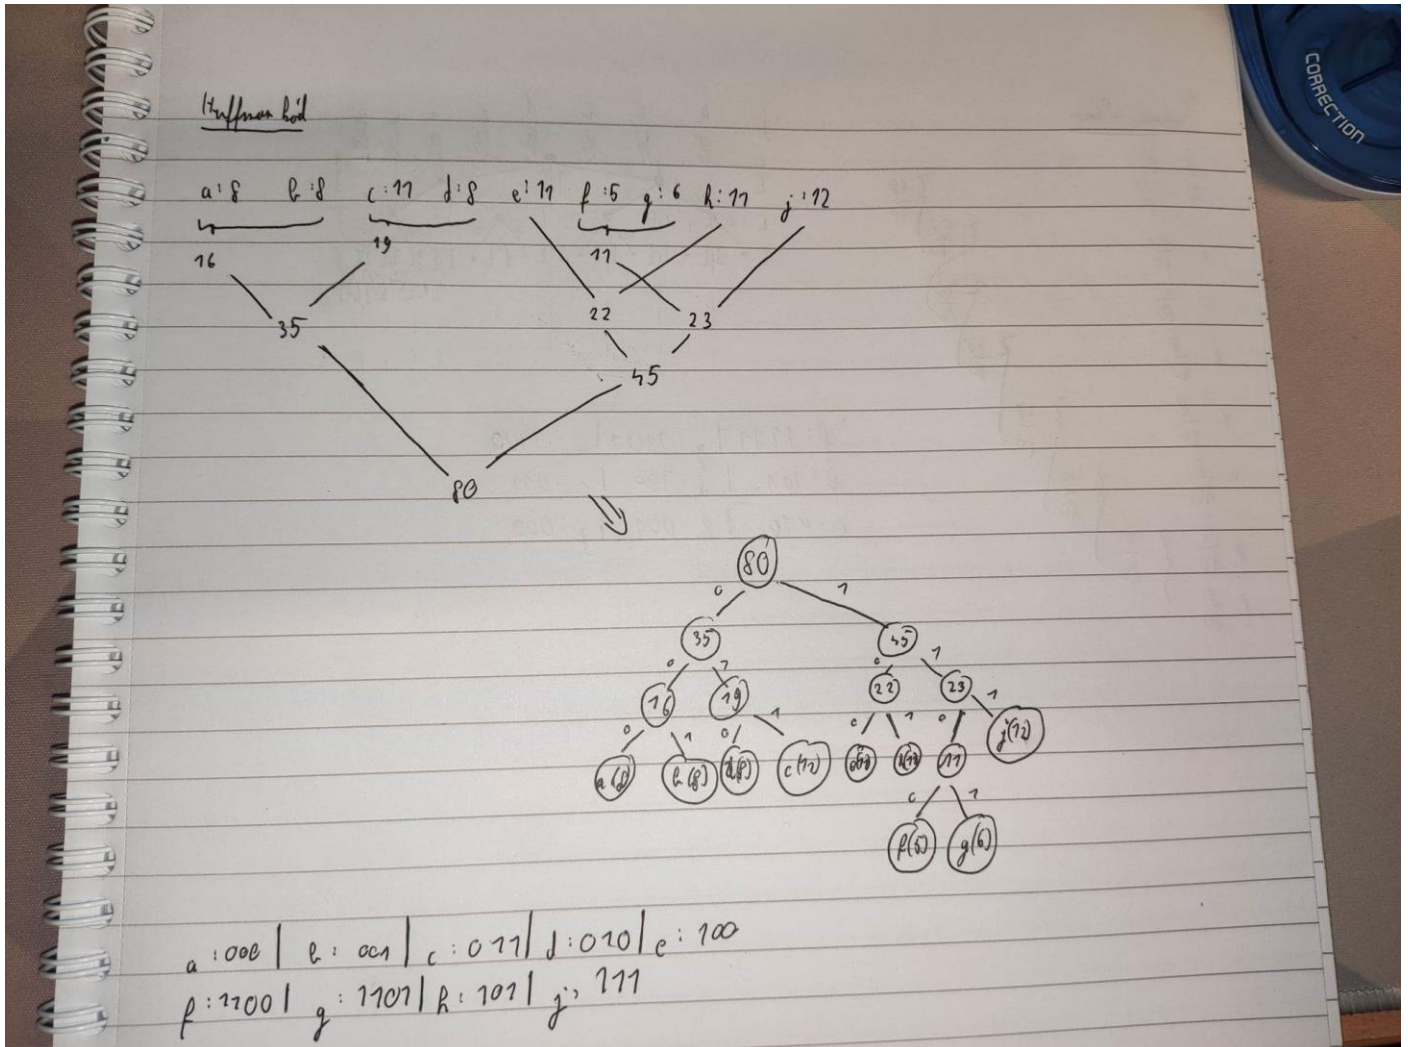 Huffman kód
CORRECTION
a:8 b:8 c:11 d:8 e:11 f:5 g:6 h:11 j:12
16 19 11
35 22 23
45
80
80
0 1
35 45
0 1 0 1
16 19 22 23
0 1 0 1 0 1 0 1
a(8) b(8) d(8) c(12) 11 j(12)
0 1
f(5) g(6)
a:000 | b: 001 | c:011 | d:010 | e:100
f:1100 | g:1101 | h:101 | j: 111